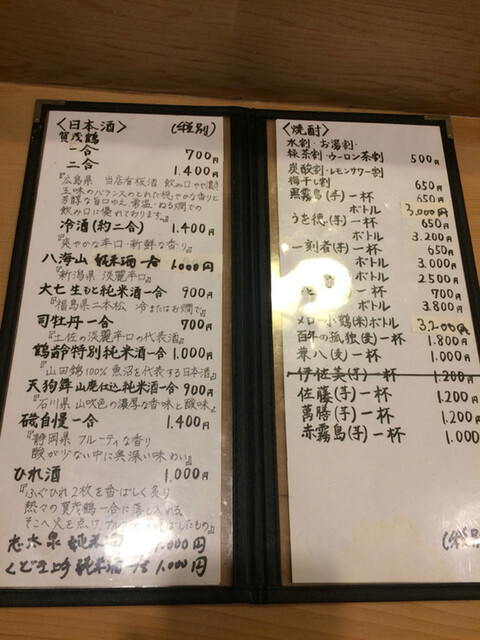 〈日本酒〉 (税別)
賀茂鶴
一合 700円
二合 1.400円
『広島県 当店看板酒 飲み口やや濃
五味のバランスのとれた穏やかな香りと
芳醇な旨口ゆえ常温・ぬる燗での
飲み口に優れております。
冷酒(約二合) 1.400円
『爽やかな辛口・新鮮な香り』
八海山 純米酒一合 1.000円
『新潟県 淡麗辛口』
大七 生もと純米酒一合 900円
『福島県二本松 冷またはお燗で』
司牡丹一合 700円
『土佐の淡麗辛口の代表酒』
鶴齢特別純米酒一合 1.000円
『山田錦100% 魚沼を代表する日本酒』
天狗舞 山廃仕込純米酒一合 900円
『石川県 山吹色の濃厚な香味と酸味』
磯自慢一合 1.400円
『静岡県 フルーティな香り
酸が少ない中に奥深い味わい』
ひれ酒 1.000円
『ふぐひれ2枚を香ばしく炙り
熱々の賀茂鶴一合に落とし入れる
そこへ火を点け、アルコール
志太泉 純米酒 1.000円
くどき上手 純米酒 1.000円
〈焼酎〉
水割・お湯割・
抹茶割・ウーロン茶割 500円
炭酸割・レモンサワー割
梅干し割 650円
黒霧島(芋)一杯 650円
ボトル 3,000円
うを徳(芋)一杯 650円
ボトル 3.200円
一刻者(芋)一杯 650円
ボトル 3.000円
一杯
ボトル 2.500円
一杯 700円
ボトル 3.800円
メロー小鶴(米)ボトル 3,200円
百年の孤独(麦)一杯 1.800円
兼八(麦)一杯 1.000円
伊佐美(芋)一杯 1.200円
佐藤(芋)一杯 1.200円
萬膳(芋)一杯 1.200円
赤霧島(芋)一杯 1.000
(税別)